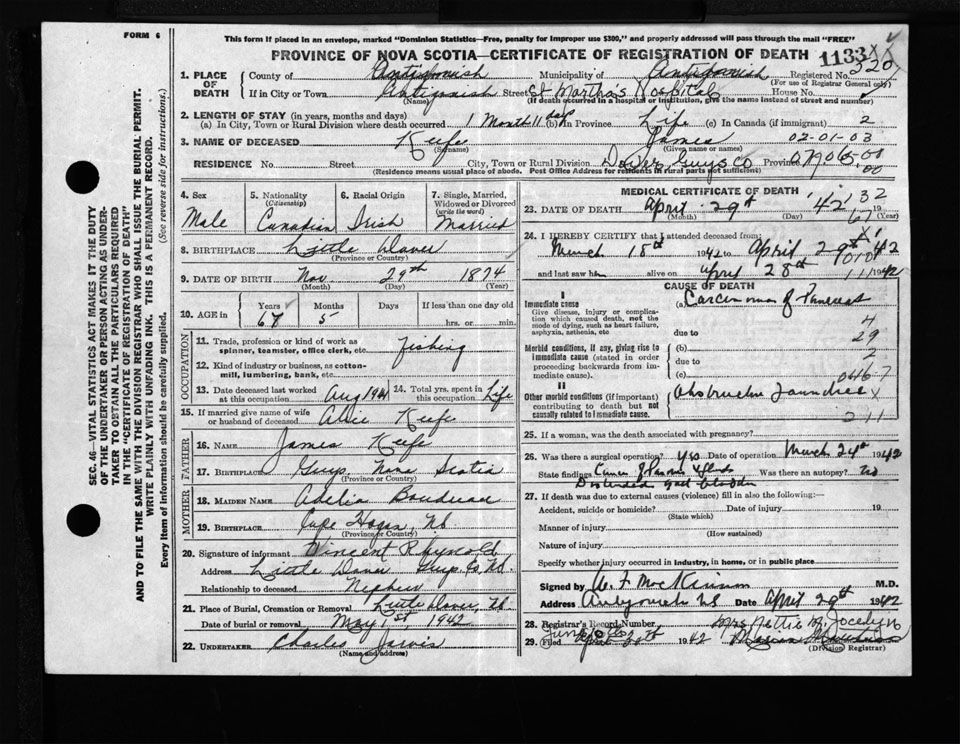 FORM 6
This form if placed in an envelope, marked "Dominion Statistics—Free, penalty for improper use $300," and properly addressed will pass through the mail "FREE"
PROVINCE OF NOVA SCOTIA—CERTIFICATE OF REGISTRATION OF DEATH
1133
320
1. PLACE OF DEATH
County of Antigonish Municipality of Antigonish Registered No.
(For use of Registrar General only)
If in City or Town Antigonish Street St Martha's Hospital House No.
(Name) (If death occurred in a hospital or institution, give the name instead of street and number)
2. LENGTH OF STAY (in years, months and days)
(a) In City, Town or Rural Division where death occurred 1 Month 11 days (b) In Province Life (c) In Canada (if immigrant) 2
02-01-03
3. NAME OF DECEASED Keefe James
(Surname) (Given name or names)
RESIDENCE No. Street City, Town or Rural Division Dover Guys Co Province
(Residence means usual place of abode. Post Office Address for residents in rural parts not sufficient)
4. Sex Male
5. Nationality (Citizenship) Canadian
6. Racial Origin Irish
7. Single, Married, Widowed or Divorced (write the word) Married
8. BIRTHPLACE Little Dover
(Province or Country)
9. DATE OF BIRTH Nov. 29th 1874
(Month) (Day) (Year)
10. AGE in Years 67 Months 5 Days If less than one day old
hrs. or min.
OCCUPATION
11. Trade, profession or kind of work as spinner, teamster, office clerk, etc. Fishing
12. Kind of industry or business, as cotton-mill, lumbering, bank, etc.
13. Date deceased last worked at this occupation Aug 1941 24. Total yrs. spent in this occupation Life
15. If married give name of wife or husband of deceased Keefe
FATHER
16. NAME James Keefe
17. BIRTHPLACE Guys. Nova Scotia
(Province or Country)
MOTHER
18. MAIDEN NAME Adelia Boudreau
19. BIRTHPLACE Cape Hogan, NS.
(Province or Country)
20. Signature of informant Vincent
Address Little Dover Guys. Co, NS.
Relationship to deceased Nephew
21. Place of Burial, Cremation or Removal Little Dover, NS.
Date of burial or removal May 1st 1942
22. UNDERTAKER Charles Jarvis
(Name and address)
MEDICAL CERTIFICATE OF DEATH
23. DATE OF DEATH April 29th '42 19
(Month) (Day) (Year)
24. I HEREBY CERTIFY that I attended deceased from:
March 18th 1942 to April 29th 1942
and last saw him alive on April 28th 1942
CAUSE OF DEATH
I
Immediate cause
Give disease, injury or complication which caused death, not the mode of dying, such as heart failure, asphyxia, asthenia, etc
(a) Carcinoma of Pancreas
due to
Morbid conditions, if any, giving rise to immediate cause (stated in order proceeding backwards from immediate cause).
(b)
due to
(c)
II
Other morbid conditions (if important) contributing to death but not causally related to immediate cause.
Obstructive Jaundice
25. If a woman, was the death associated with pregnancy?
26. Was there a surgical operation? yes Date of operation March 24th 1942
State findings Cancer of Pancreas Was there an autopsy? no
Distended gall bladder
27. If death was due to external causes (violence) fill in also the following:—
Accident, suicide or homicide? Date of injury 19
(State which)
Manner of injury
(How sustained)
Nature of injury
Specify whether injury occurred in industry, in home, or in public place
Signed by M.D.
Address Antigonish NS Date April 29th 1942
28. Registrar's Record No. Mrs Nettie M. Jocelyn
29. Filed 1942
(Division Registrar)
SEC. 46—VITAL STATISTICS ACT MAKES IT THE DUTY OF THE UNDERTAKER OR PERSON ACTING AS UNDERTAKER TO OBTAIN ALL THE PARTICULARS REQUIRED IN THE "CERTIFICATE OF REGISTRATION OF DEATH" AND TO FILE THE SAME WITH THE DIVISION REGISTRAR WHO SHALL ISSUE THE BURIAL PERMIT.
WRITE PLAINLY WITH UNFADING INK. THIS IS A PERMANENT RECORD.
Every item of information should be carefully supplied. (See reverse side for instructions.)